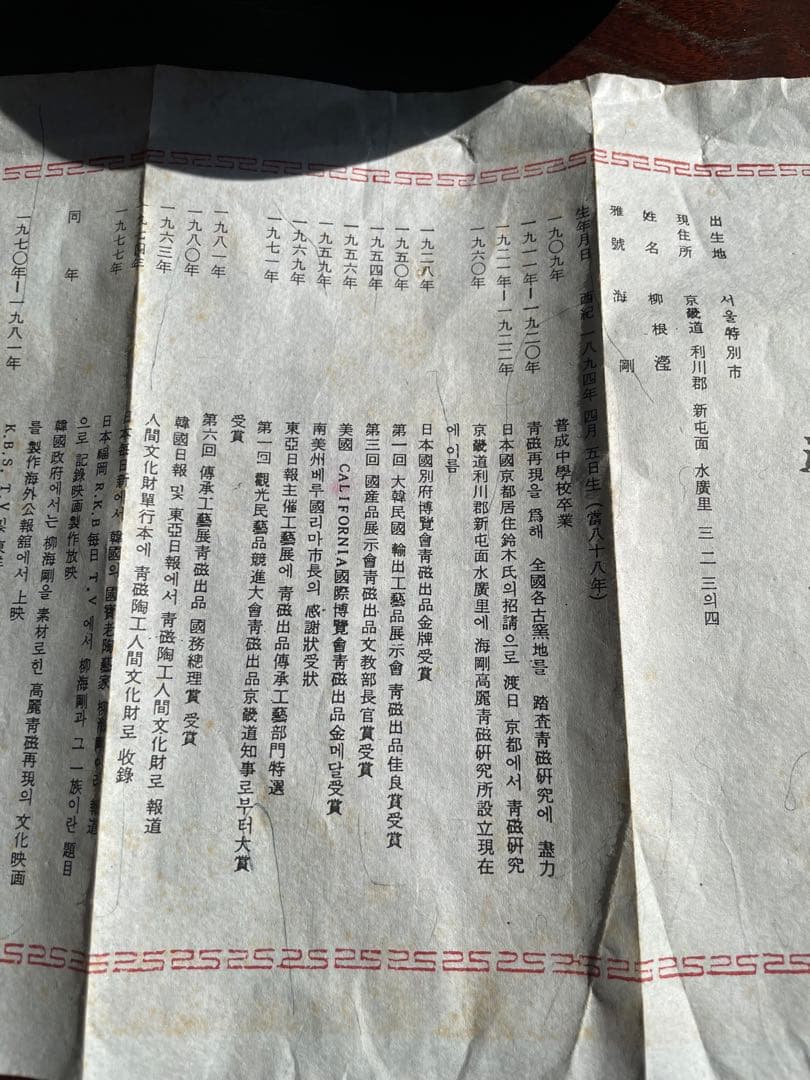 出生地 서울特別市
現住所 京畿道 利川郡 新屯面 水廣里 三二三의四
姓名 柳根瀅
雅號 海剛
生年月日 西紀 一八九四年 四月 五日生 (當八十八年)
一九〇九年 普成中學校卒業
一九一一年ー一九二〇年 靑磁再現을 爲해 全國各古窯地를 踏査靑磁硏究에 盡力
一九二一年ー一九二二年 日本國京都居住鈴木氏의招請으로 渡日 京都에서 靑磁硏究
一九六〇年 京畿道利川郡新屯面水廣里에 海剛高麗靑磁硏究所設立現在
에 이름
一九二八年 日本國別府博覽會靑磁出品金牌受賞
一九五〇年 第一回 大韓民國 輸出工藝品展示會 靑磁出品佳良賞受賞
一九五四年 第三回 國産品展示會靑磁出品文敎部長官賞受賞
一九五六年 美國 CALIFORNIA國際博覽會靑磁出品金메달受賞
一九五九年 南美州베루國리마市長의 感謝狀受狀
一九六九年 東亞日報主催工藝展에 靑磁出品傳承工藝部門特選
一九七一年 第一回 觀光民藝品競進大會靑磁出品京畿道知事로부터大賞
受賞
一九八一年 第六回 傳承工藝展靑磁出品 國務總理賞 受賞
一九八〇年 韓國日報 및 東亞日報에서 靑磁陶工人間文化財로 報道
一九六三年 人間文化財單行本에 靑磁陶工人間文化財로 收錄
年 日本每日新에서 韓國의 國寶老陶藝家 柳海剛이라 報道
一九七七年 日本福岡 R.K.B 每日 T.V 에서 柳海剛과 그 一族이란 題目
으로 記錄映画製作放映
同年 韓國政府에서는 柳海剛을 素材로힌 高麗靑磁再現의 文化映画
를 製作海外公報舘에서 上映
一九七〇年ー一九八一年 K.B.S. T.V 및